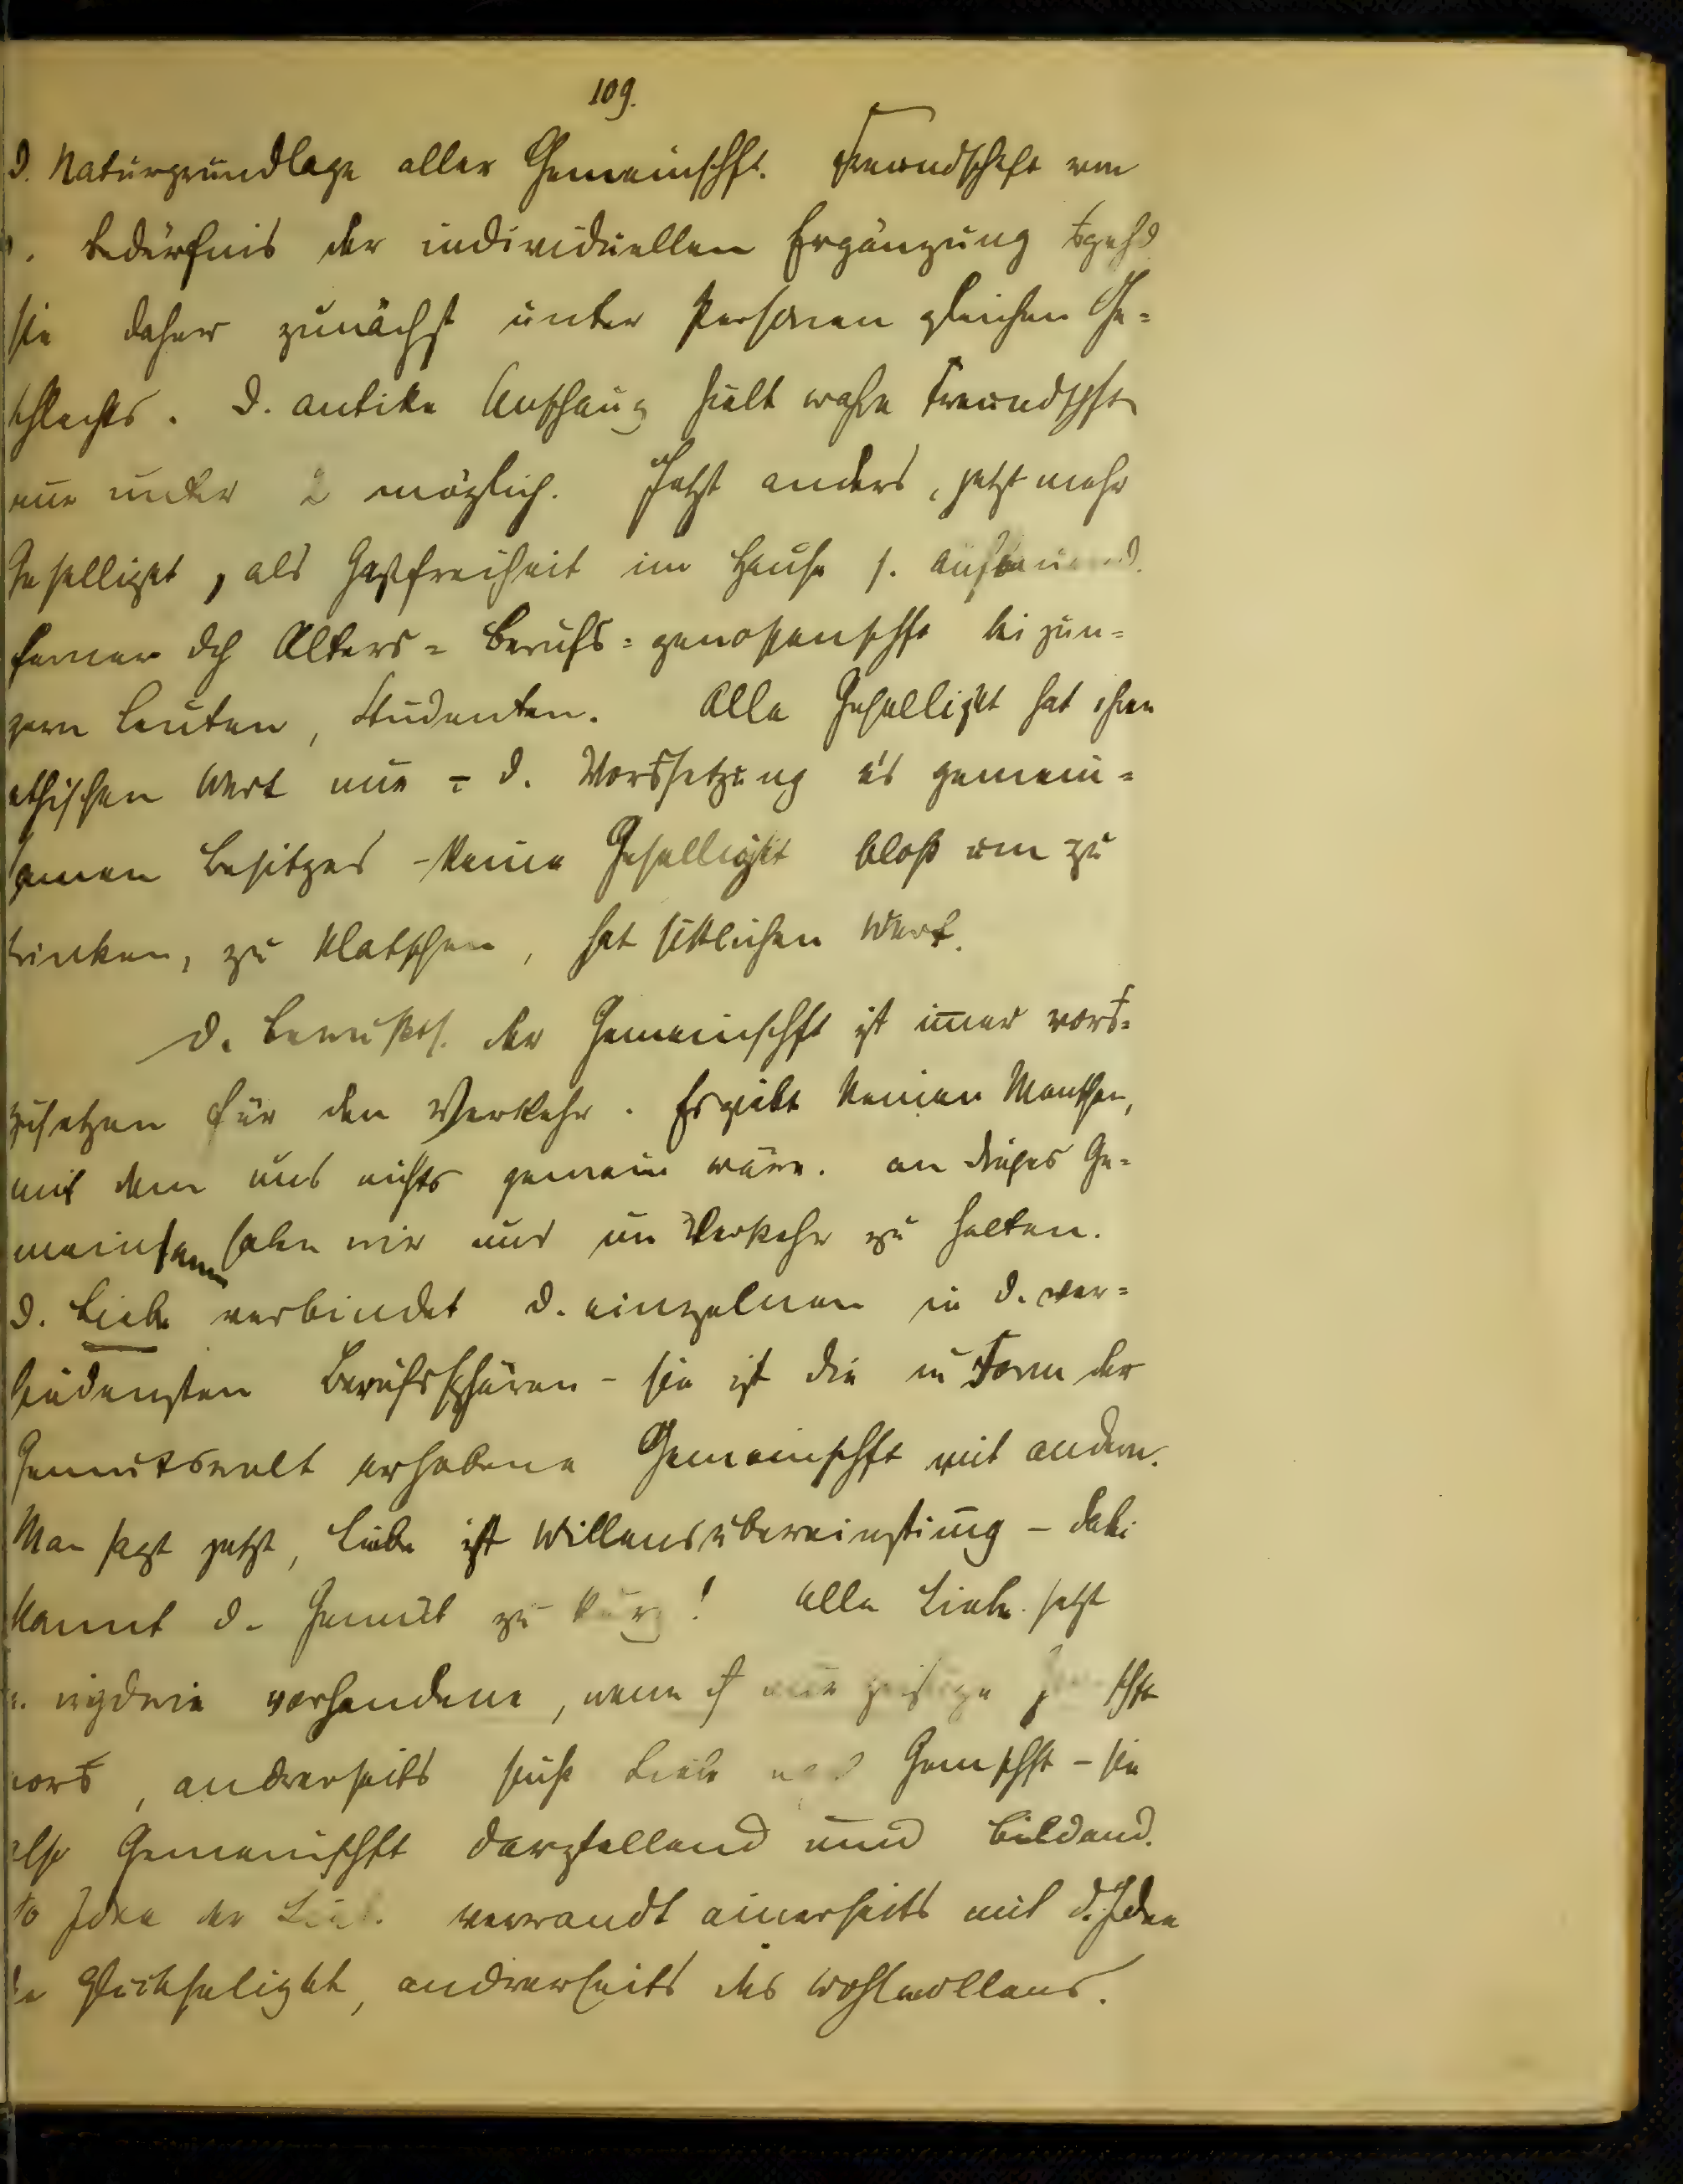 109.
D. Naturgrundlage aller Gemeinschft. Freundschaft vom
. Bedürfnis der individuellen Ergänzung
sie daher zunächst unter Personen gleichen Ge=
schlechts. D. antike Anschaug hielt wahre Freundschft
nur unter 2 möglich. Jetzt anders, jetzt mehr
Geselligkt, als Gastfreiheit im Hause s.
ferner dch Alters= Berufs=genossenschft bei jün=
gern Leuten, Studenten. Alle Geselligkt hat ihren
ethischen Wert nur = d. Vorssetzung e's gemein=
samen Besitzes - keine Geselligkt bloß um zu
trinken, zu klatschen, hat sittlichen Wert.
D. Bewußts. der Gemeinschft ist im̄er vors=
zusetzen für den Verkehr. Es giebt keinen Menschen,
mit dem uns nichts gemein wäre. an dieses Ge=
meinsame haben wir uns im Verkehr zu halten.
D. Liebe verbindet d. einzelnen in d. ver=
schiedensten Berufssphären - sie ist die in Form der
Gemütswelt erhobene Gemeinschft mit andern.
Man sagt jetzt, Liebe ist Willensübereinstim̄ug - dabei
kommt d. Gemüt zu kurz! Alle Liebe setzt
irgdwie vorhandene, wenn ch nur geistige schft
vors, andrerseits sucht Liebe Gemschft - sie
also Gemeinschft darstellend und bildend.
So Idee der Liebe verwandt einerseits mit d. Idee
der Glückseligkt, andrerseits des Wohlwollens.